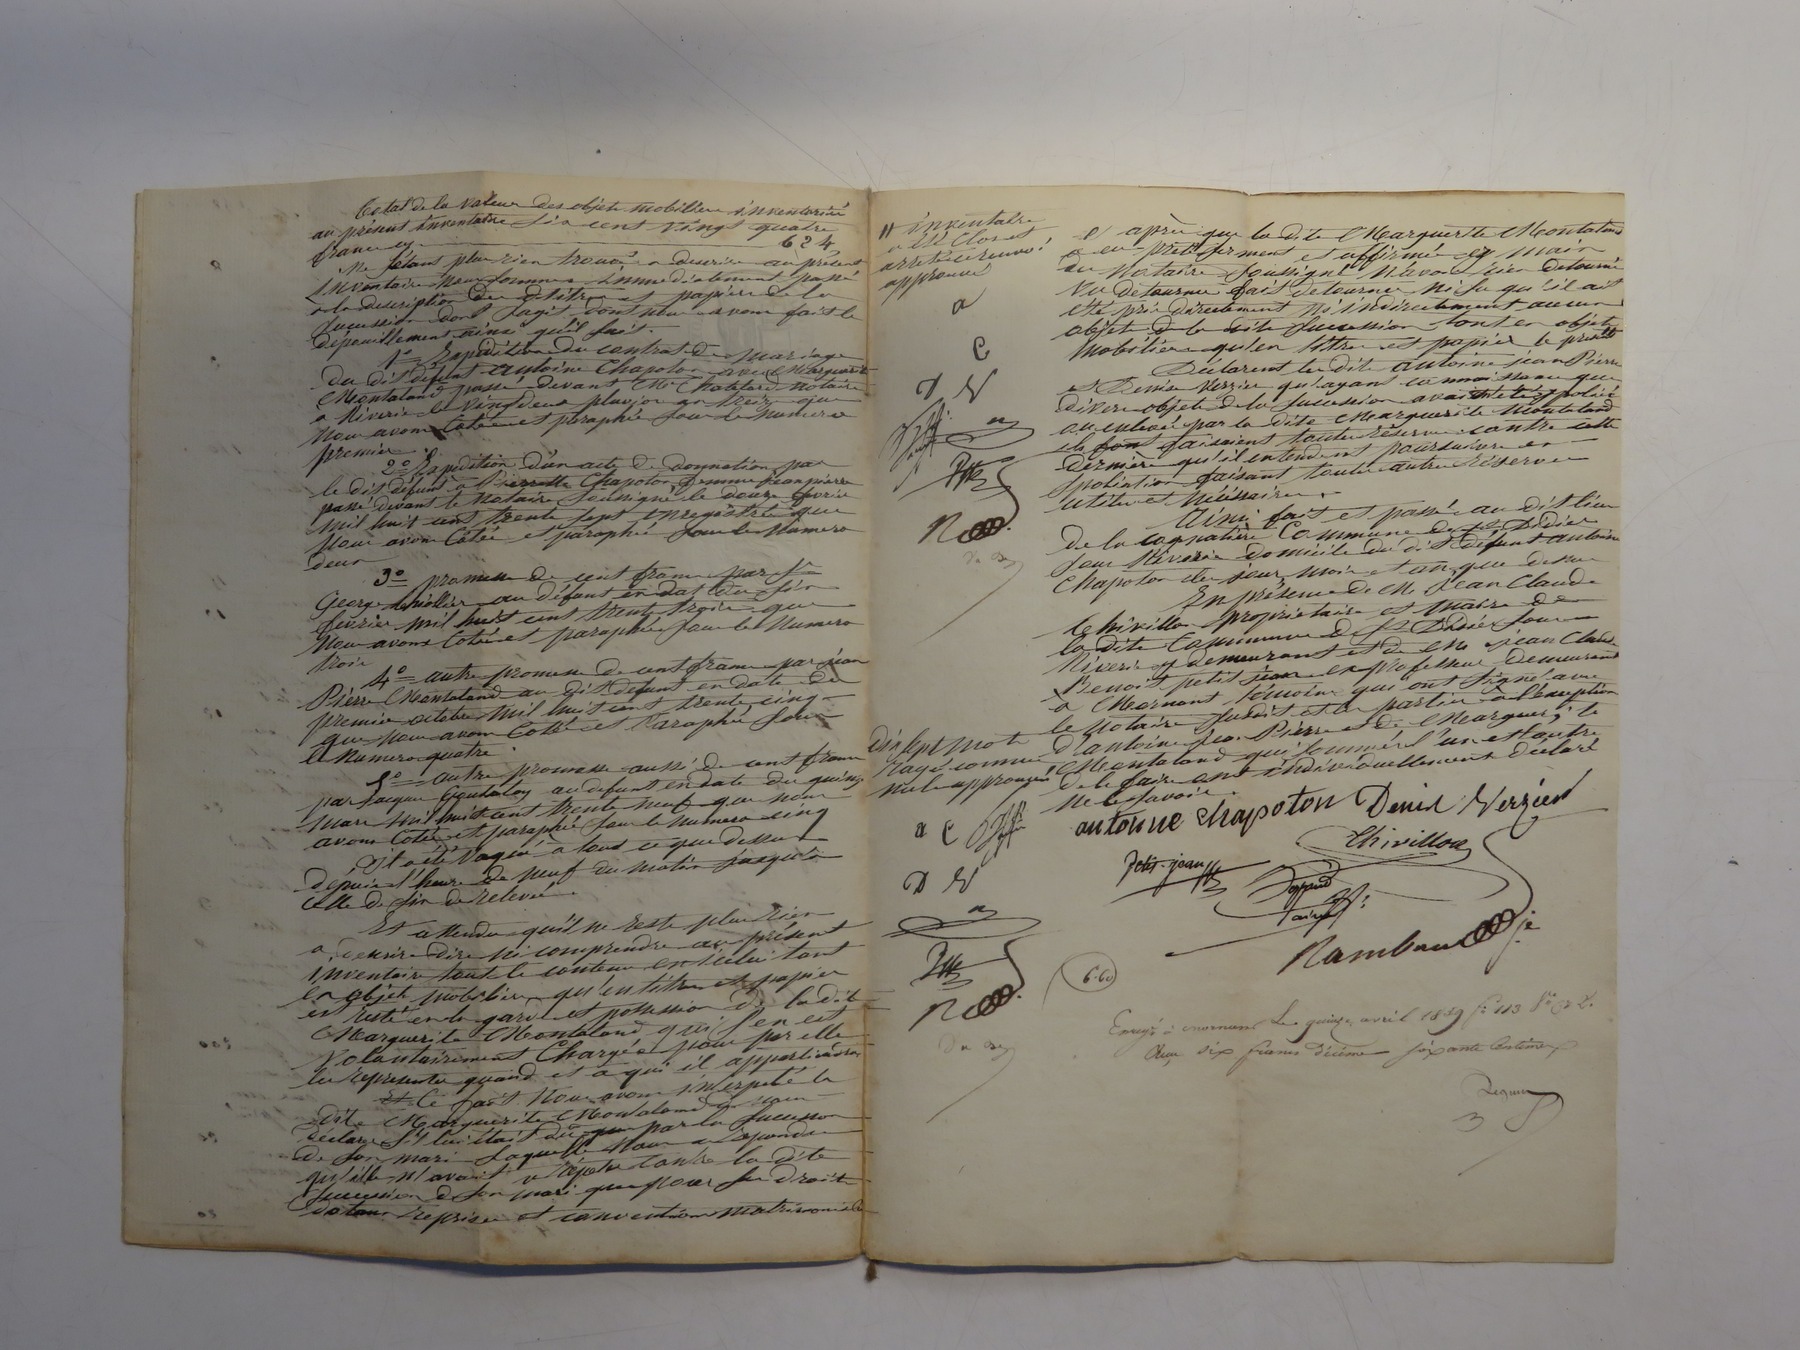 Total de la valeur des objets mobiliers inventoriés
au présent inventaire six cent vingt quatre
francs cy 624
Ne s'étant plus rien trouvé a descrire au présent
inventaire nous sommes immediatement passé
a la description des titres et papiers de la
succession dont s'agit dont nous avons fait le
dépouillement ainsi qu'il suit.
1° Expédition du contrat de mariage
du dit défunt antoine Chapoton avec Marguerite
Montaland passé devant Me Chatelard notaire
a Riverie le vingt deux pluviose an treize que
nous avons Cotée et paraphée sous le numero
premier.
2° Expédition d'un acte de donnation par
le dit défunt a Pierrette Chapoton femme jean pierre
passé devant le notaire soussigné le douze fevrier
mil huit cent trente sept enregistré que
nous avons Cotée et paraphée sous le numero
deux
3° promesse de cent francs par sr
George au défunt en dat du six
février mil huit cent trente trois que
nous avons Cotée et paraphée sous le numero
trois
4° autre promesse de cent francs par jean
Pierre Montaland au dit défunt en date du
premier octobre mil huit cent trente cinq
que nous avons Cotée et Paraphée sous
le numero quatre
5° autre promesse aussi de cent francs
par jacques au défunt en date du quinze
mars mil huit cent trente neuf que nous
avons Cotée et paraphée sous le numero cinq
Il a été Vaqué a tout ce que dessus
depuis l'heure de neuf du matin jusqu'a
celle de six de relevée.
Et attendu qu'il ne reste plus rien
a descrire dire ni comprendre au présent
inventaire tout le contenu en icelui tant
en objets mobiliers qu'en titres et papiers
est resté en la garde et possession de la dite
Marguerite Montaland qui s'en est
Volontairement Chargée pour par elle
les représenter quand et a qui il appartiendra
Et Ce fait Nous avons interpelé la
dite Marguerite Montaland de nous
déclarer s'il lui était dû par la succession
de son mari laquelle Nous a repondu
qu'elle n'avait a répéter contre la dite
succession de son mari que pour ses droits
dotaux reprises et conventions matrimoniales
11 inventaire
a été Clos et
arreté
approuvé
a
C
D V
R
Et après que la dite Marguerite Montaland
a eu preté serment et affirmée ez main
du Notaire soussigné N'avoir rien detourné
Vu détourner fait detourner ni su qu'il ait
été pris directement Ni indirectement aucuns
objets de la dite succession tant en objets
mobiliers qu'en titres et papiers le présent
Déclarent les dits antoine jean Pierre
et Denis Verzier qu'ayant connaissance que
divers objets de la succession avaient été spoliés
ou enlevés par la dite Marguerite Montaland
ils font faisaient toutes réserves contre cette
dernière qu'ils entendent poursuivre en
spoliation faisant toutes autres réserves
utiles et nécéssaires.
Ainsi fait et passé au dit lieu
de la cognatière Commune de St Didier
sous Riverie domicile du dit défunt antoine
Chapoton les jour mois et an que dessus
En présence de Mr jean Claude
Chivillon propriétaire et maire de
la dite Commune de St Didier sous
Riverie y demeurant et de Mr jean Claude
Benoit petit jean ex professeur demeurant
a Mornant témoins qui ont signé avec
le notaire susdit et les parties a l'exception
d'antoine jean Pierre et de Marguerite
Montaland qui sommés l'un et l'autre
de le faire ont individuellement déclaré
ne le savoir.
Dix sept mots
rayés comme
nuls approuvés
a C
D V
R
antoinne chapoton Denis Verzier
Chivillon
Petit-jean
Rambaud
6.60
Enregé à mornant Le quinze avril 1839 fo 113
Reçu six francs décime soixante Centimes